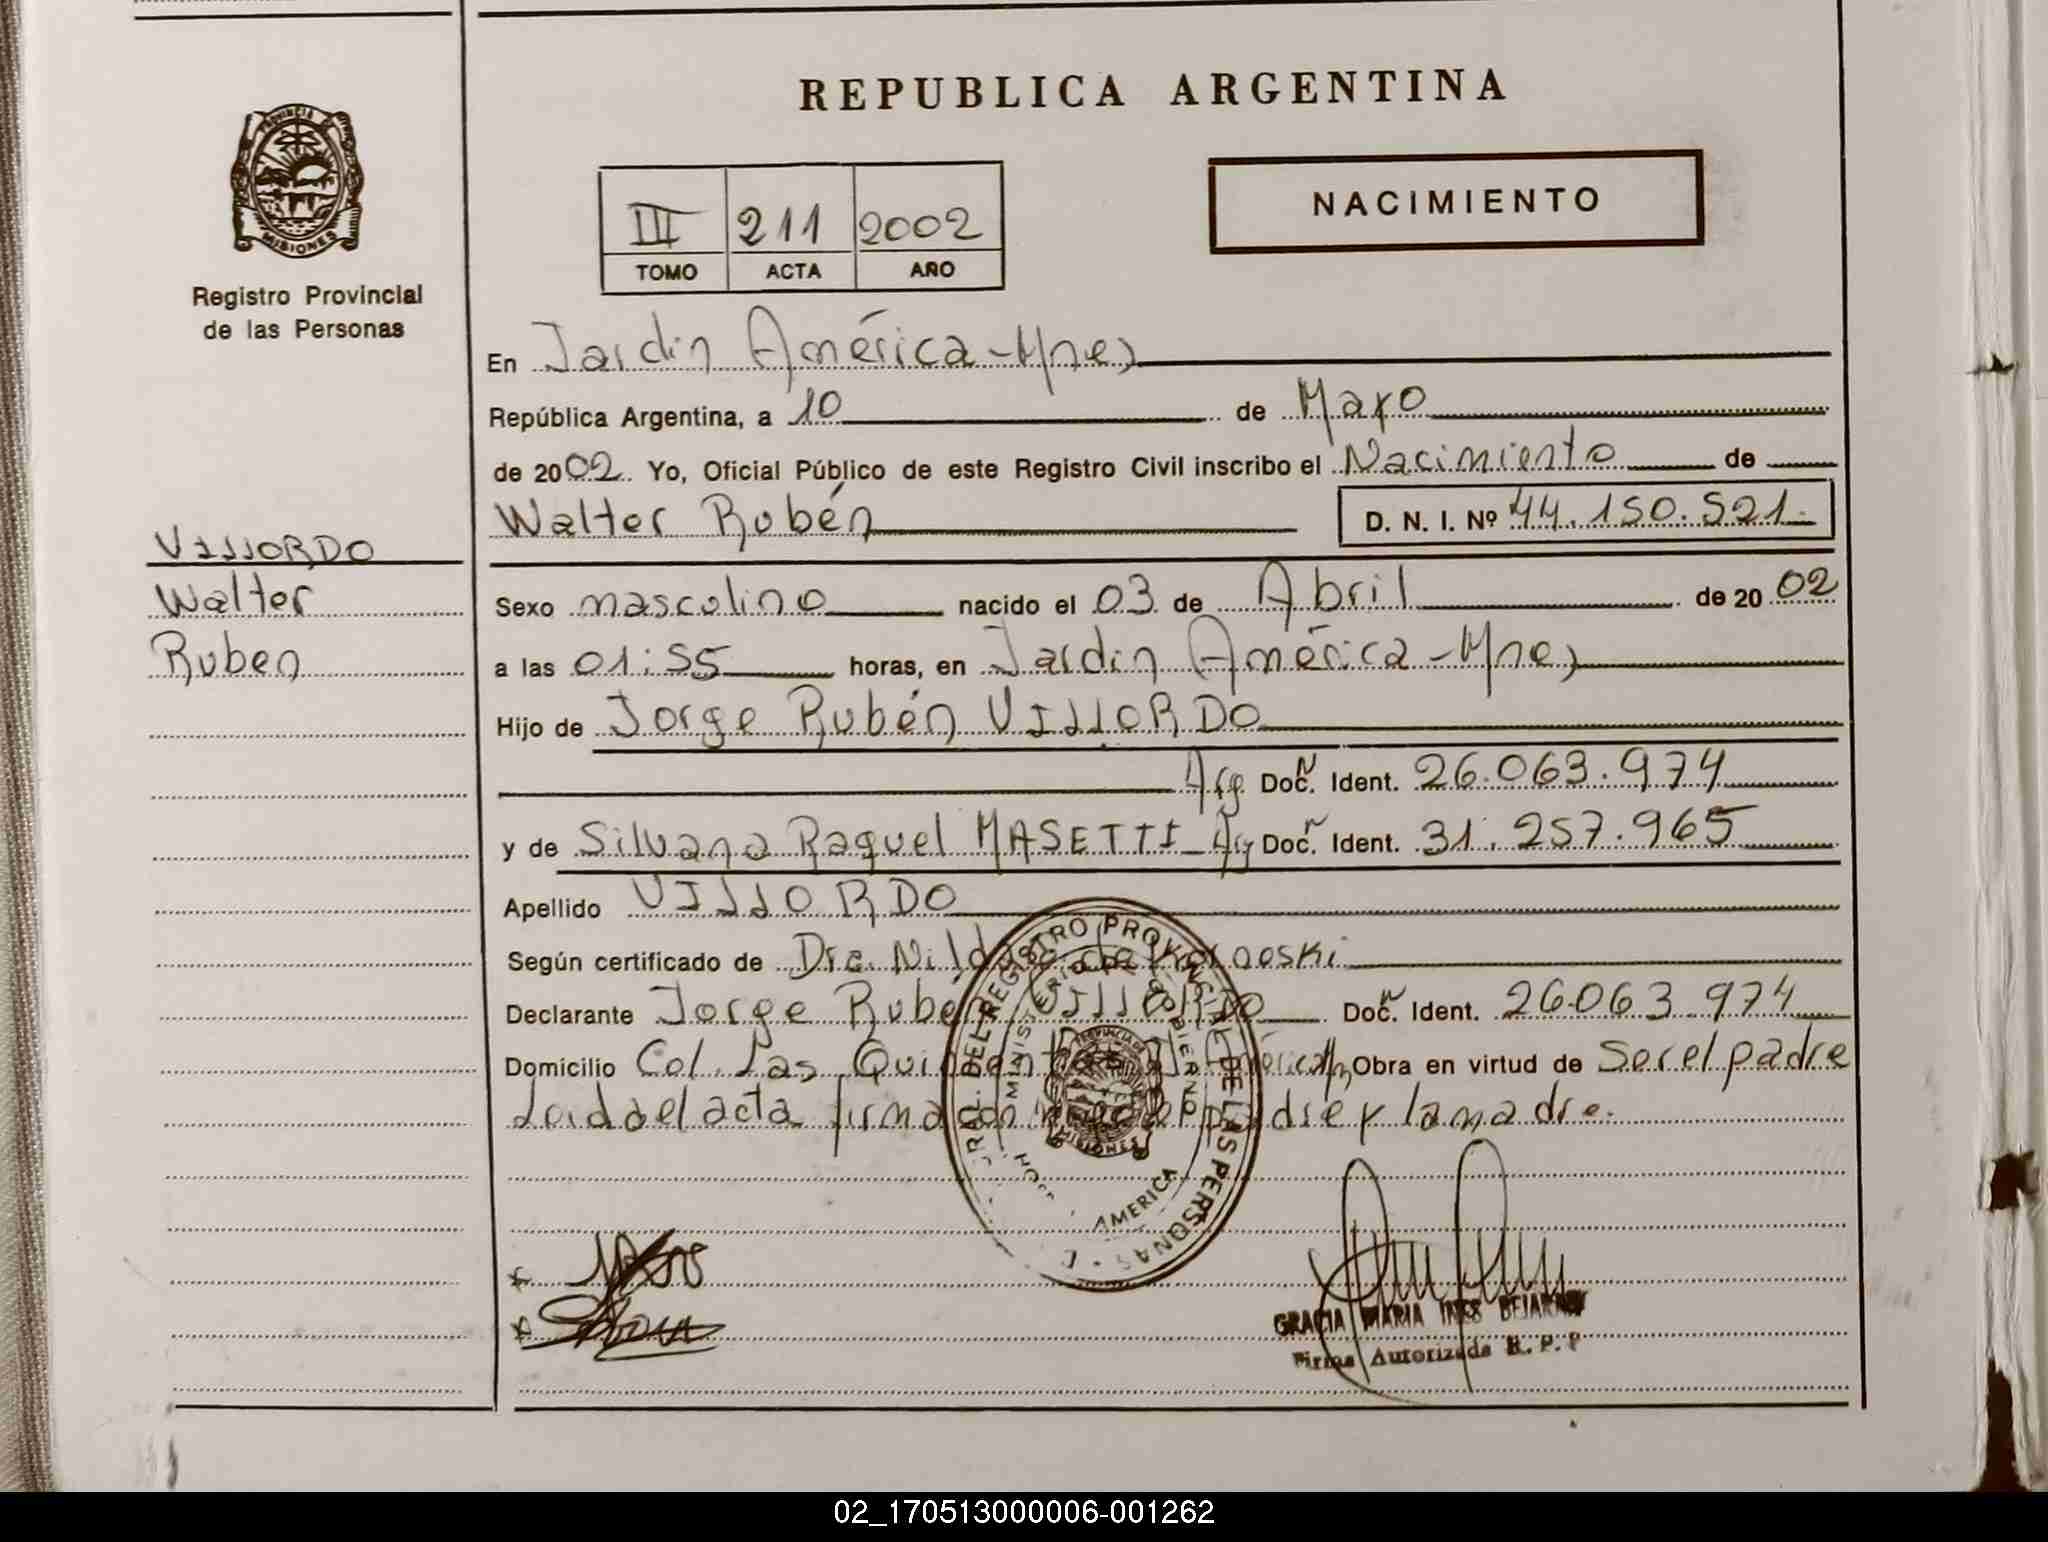 REPUBLICA ARGENTINA
PROVINCIA
MISIONES
Registro Provincial
de las Personas
III 211 2002
TOMO ACTA AÑO
NACIMIENTO
En Jardin América-Mnes
República Argentina, a 10 de Mayo
de 2002. Yo, Oficial Público de este Registro Civil inscribo el Nacimiento de
Walter Rubén D. N. I. Nº 44.150.521.
VILLORDO
Walter
Ruben
Sexo masculino nacido el 03 de Abril de 2002
a las 01:55 horas, en Jardin América-Mnes
Hijo de Jorge Rubén VILLORDO
Arg Doc. Ident. 26.063.974
y de Silvana Raquel MASETTI - Arg Doc. Ident. 31.257.965
Apellido VILLORDO
Según certificado de Dra. Nilda
Declarante Jorge Rubén VILLORDO Doc. Ident. 26.063.974
Domicilio Col. Las América Obra en virtud de Ser el padre
Leida el acta firman el padre y la madre.
REGISTRO PROVINCIAL DE LAS PERSONAS
MINISTERIO DE GOBIERNO
PROVINCIA DE
MISIONES
AMERICA
GRACIA MARIA INES BEJARANO
Firma Autorizada R. P. P
02_170513000006-001262